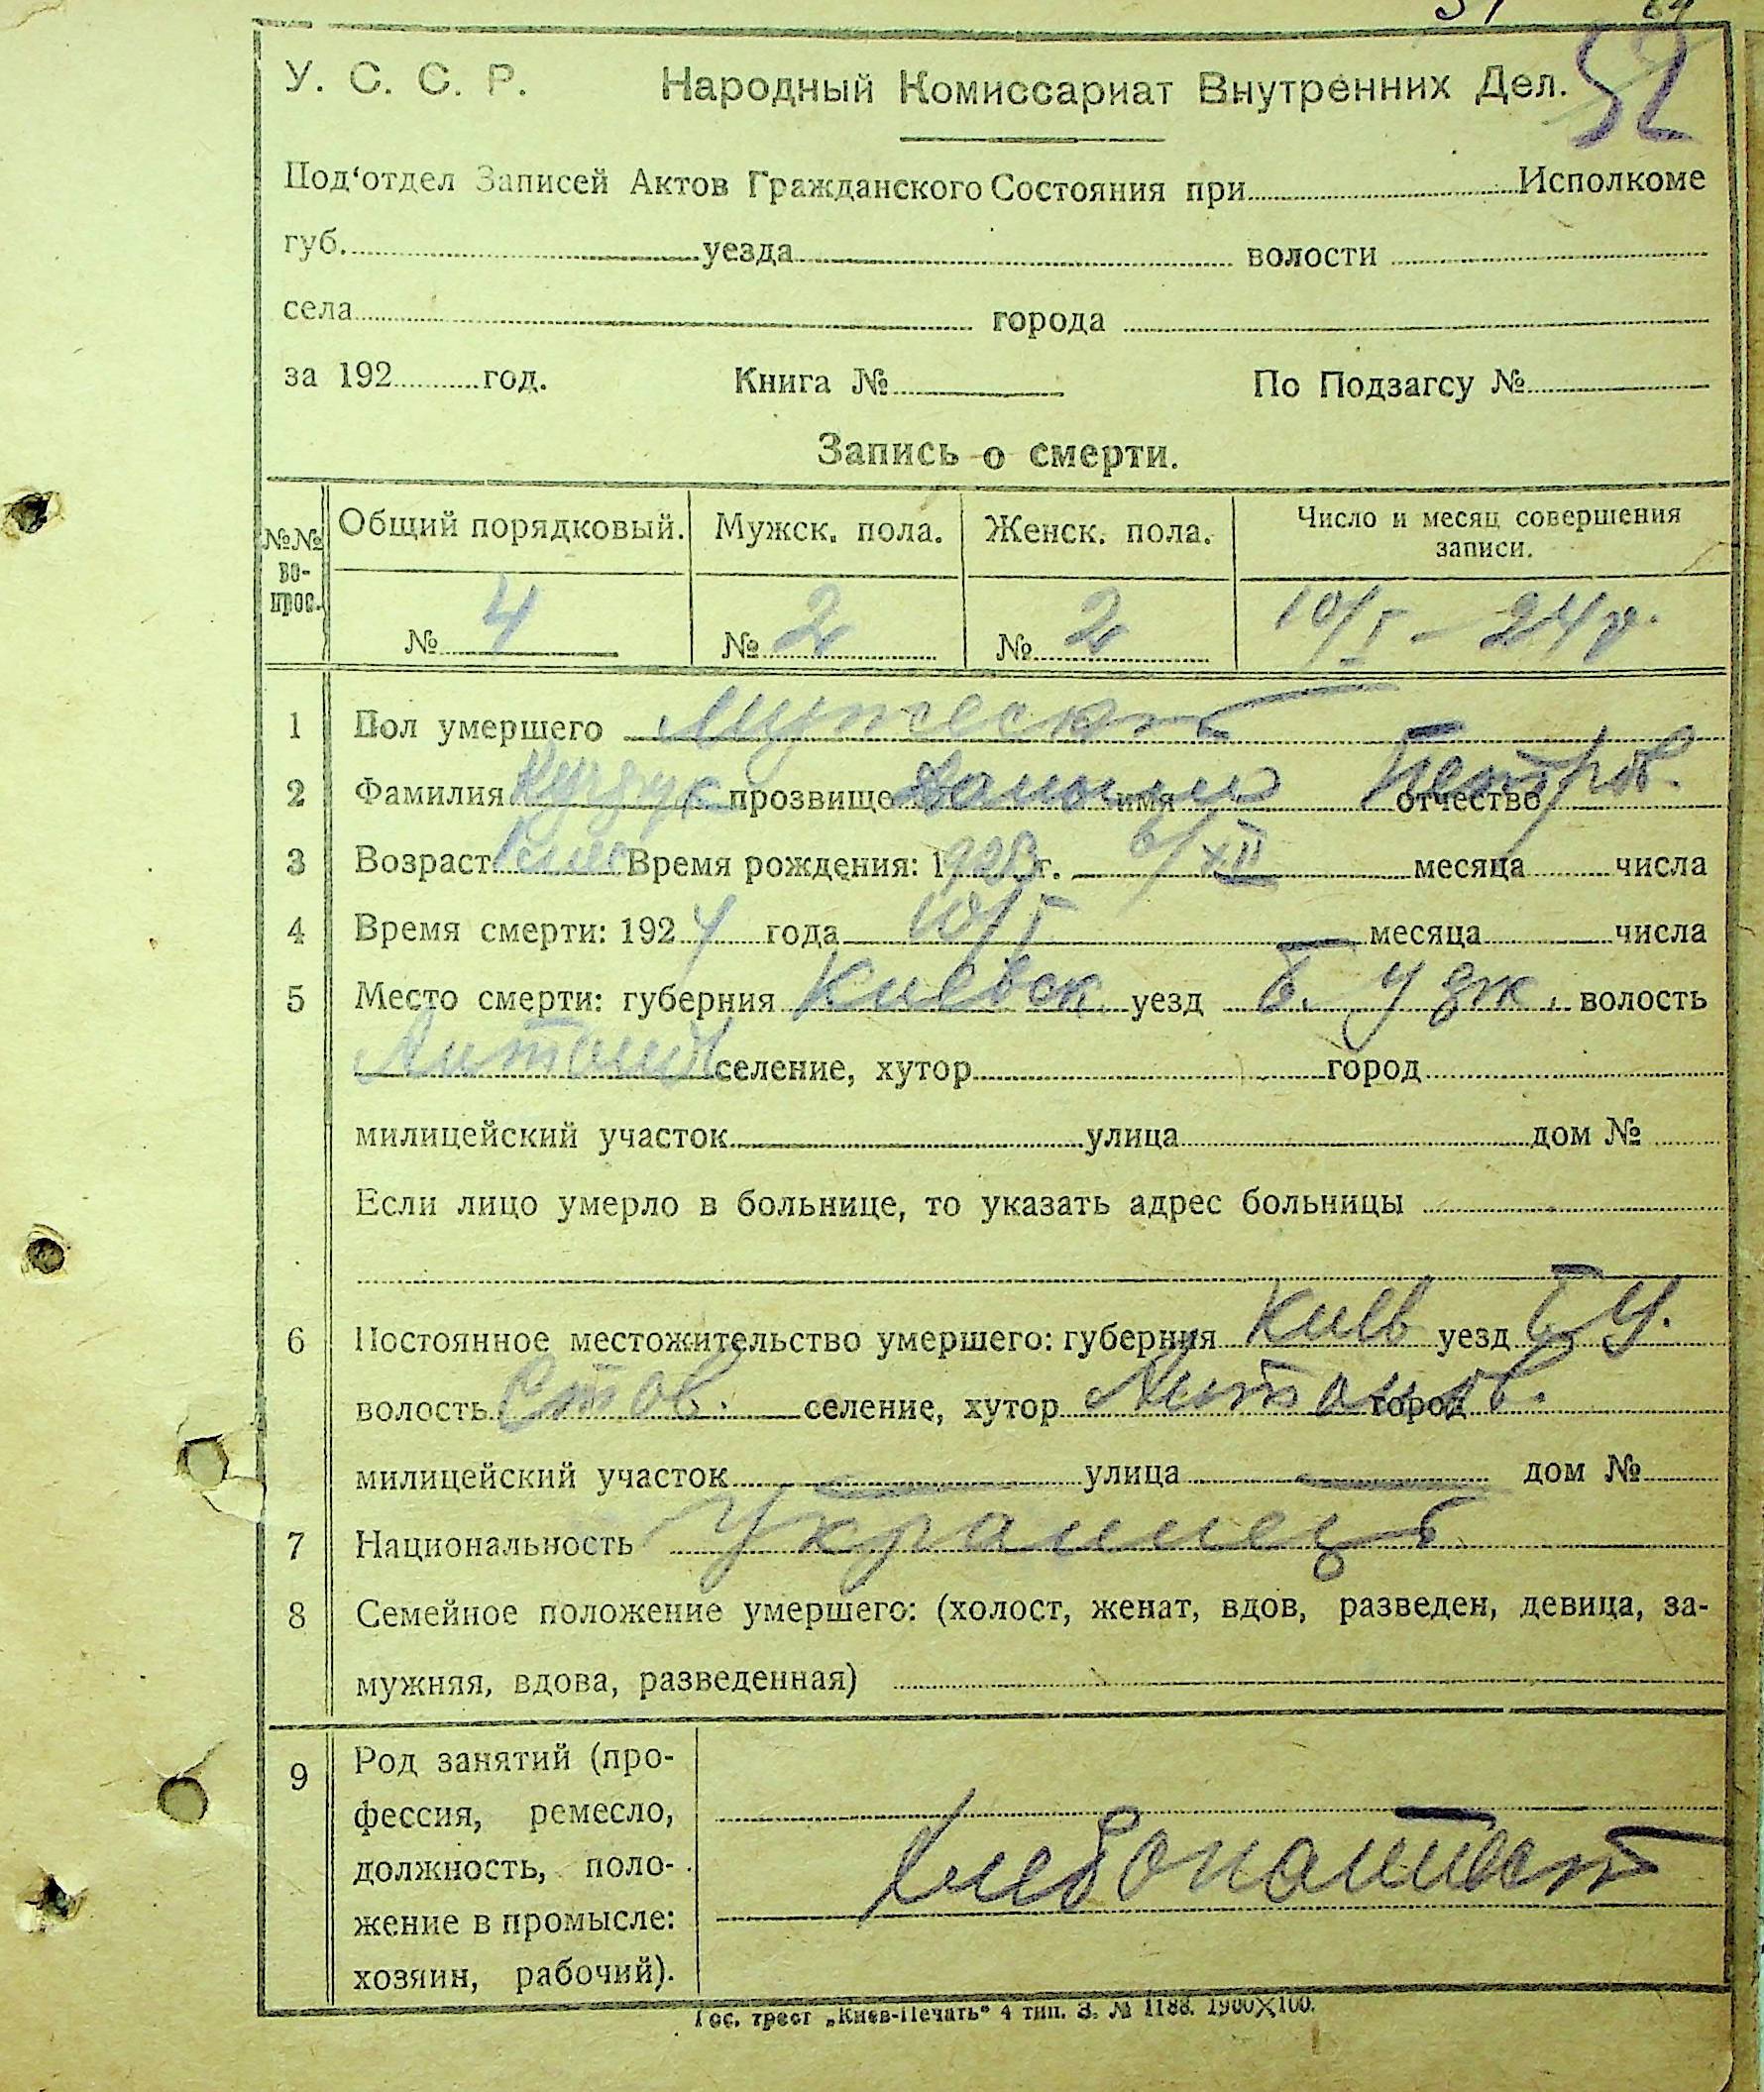 У. С. С. Р. Народный Комиссариат Внутренних Дел. 52
Под‘отдел Записей Актов Гражданского Состояния при Исполкоме
губ. уезда волости
села города
за 192 год. Книга № По Подзагсу №
Запись о смерти.
№№ во-прос. Общий порядковый. Мужск. пола. Женск. пола. Число и месяц совершения записи.
№ 4 № 2 № 2 10/I – 24 г.
1 Пол умершего Мужеский
2 Фамилия прозвище имя отчество Петров.
3 Возраст Время рождения: 1923 г. 6/XII месяца числа
4 Время смерти: 1924 года 10/I месяца числа
5 Место смерти: губерния Киевск уезд Б. волость
Антонов селение, хутор город
милицейский участок улица дом №
Если лицо умерло в больнице, то указать адрес больницы
6 Постоянное местожительство умершего: губерния Киев уезд Б Ц.
волость Став. селение, хутор Антонов. город
милицейский участок улица дом №
7 Национальность Украинец
8 Семейное положение умершего: (холост, женат, вдов, разведен, девица, за-
мужняя, вдова, разведенная)
9 Род занятий (про-
фессия, ремесло,
должность, поло-
жение в промысле:
хозяин, рабочий).
Хлебопашест
Гос. трест „Киев-Печать“ 4 тип. З. № 1188. 1900×100.